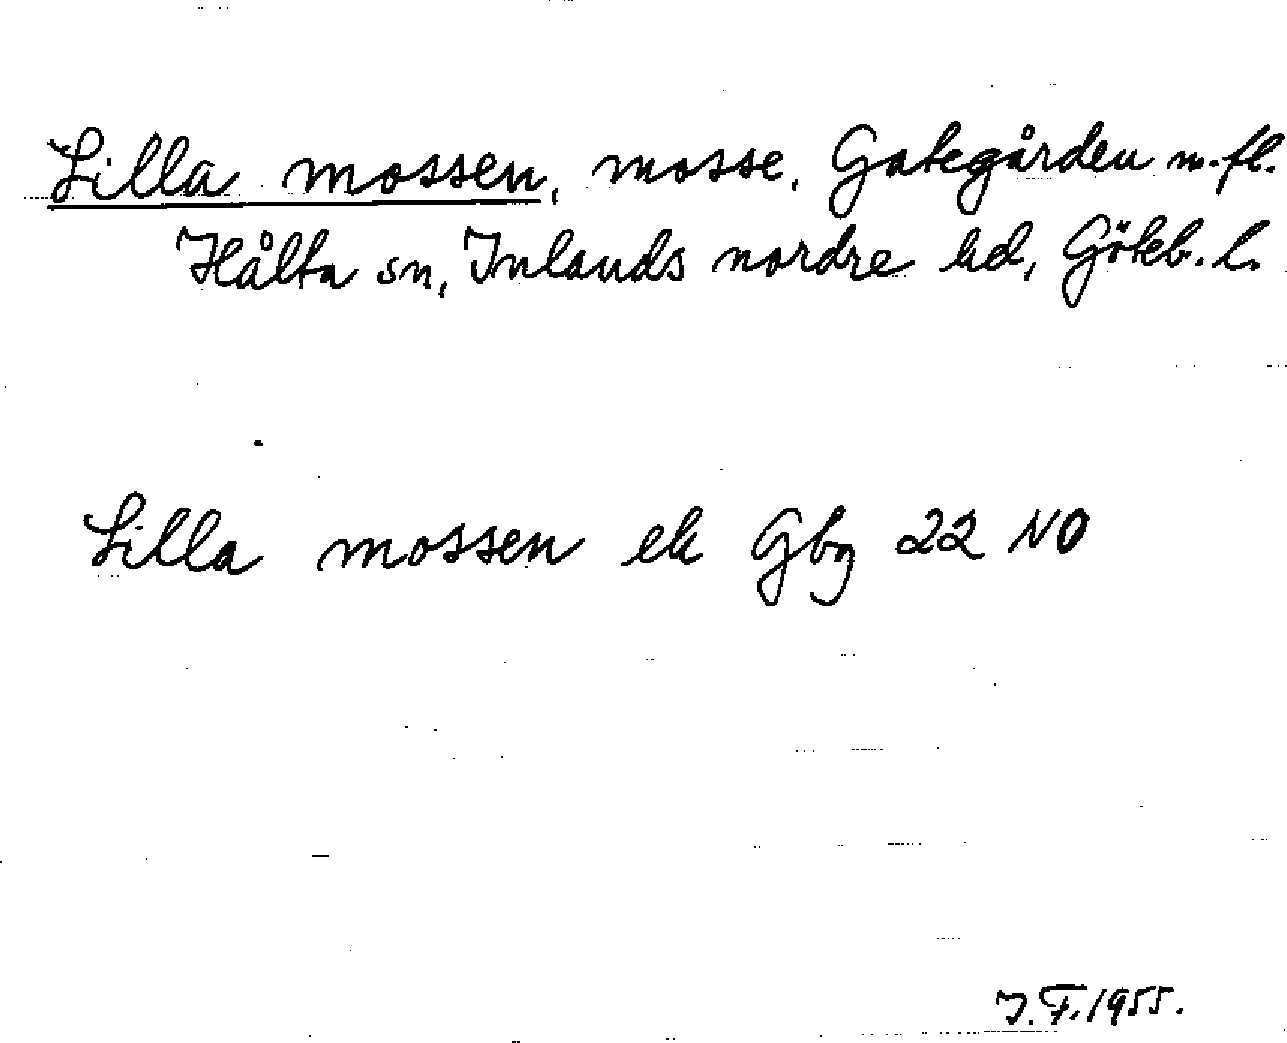 Lilla mossen, mosse, Gategården m.fl.
Hålta sn, Inlands nordre hd, Göteb. l.
Lilla mossen ek Gbg 22 NO
I.F. 1955.